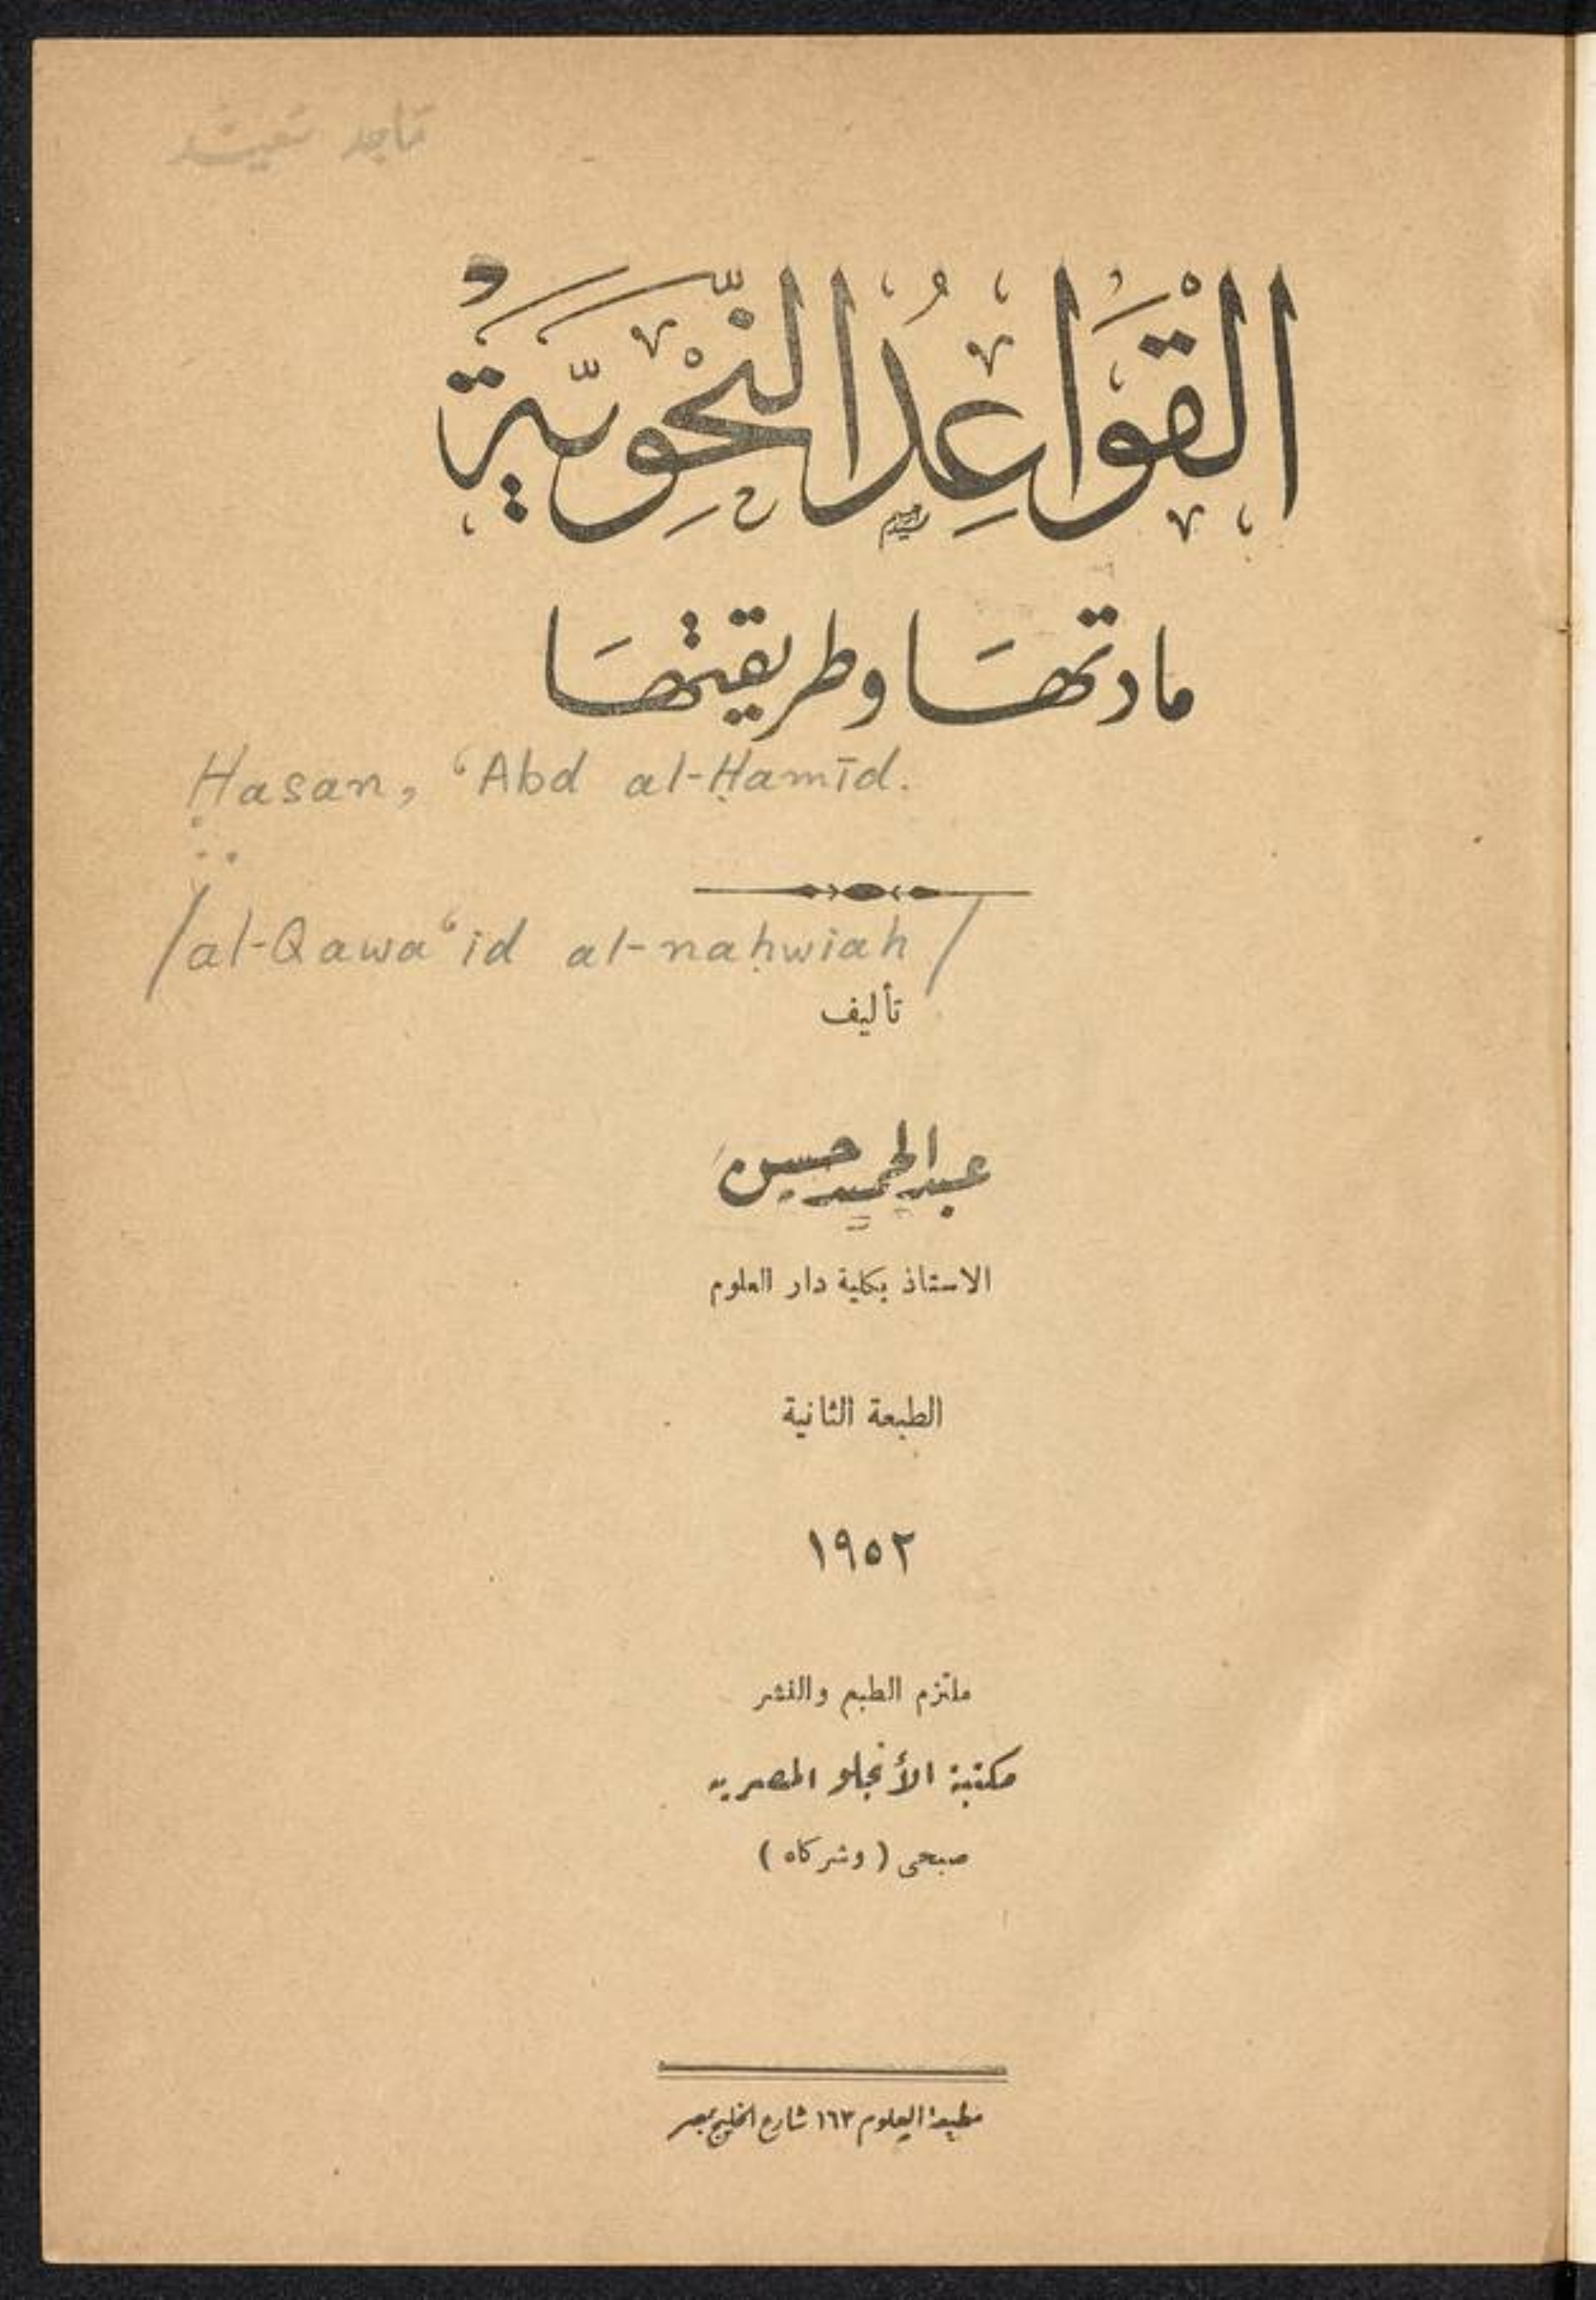 القَوَاعِدُ النَّحْوِيَّةُ
مادتهَا وطريقتهَا
Ḥasan, ʻAbd al-Ḥamīd.
/al-Qawaʻid al-naḥwiah/
تأليف
عبد الحميد حسن
الاستاذ بكلية دار العلوم
الطبعة الثانية
١٩٥٢
ملتزم الطبع والنشر
مكتبة الأنجلو المصرية
صبحى ( وشركاه )
مطبعة العلوم ١٦٣ شارع الخليج بمصر